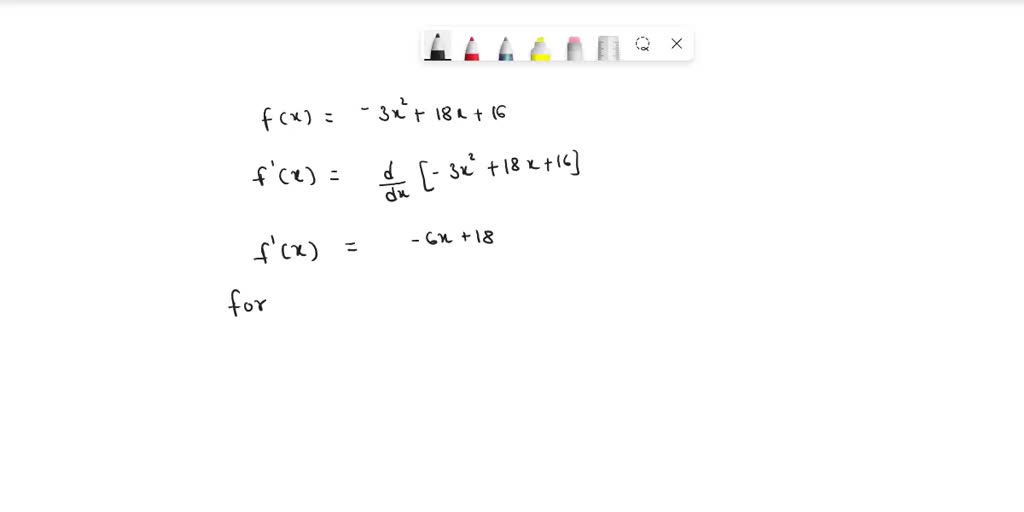 f(x) = -3x² + 18x + 16
f'(x) = d/dx [-3x² + 18x + 16]
f'(x) = -6x + 18
for